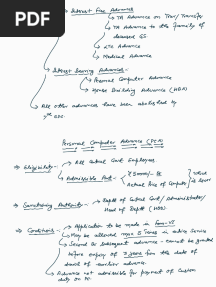 PDF
Interest Free Advances
→ TA Advance on Tour/Transfer
→ TA Advance to the family of
deceased GS
→ LTC Advance
→ Medical Advance
Interest Bearing Advances -
→ Personal Computer Advance
→ House Building Advance (HBA)
All other advances have been abolished by
7th CPC.
Personal Computer Advance (PCA)
⇒ Eligibility - All Central Govt Employees.
Admissible Amt -
Actual Price of Computer
is lower
⇒ Sanctioning Authority - Deptt of Central Govt / Administrator/
Head of Deptt (HOD)
⇒ Conditions - Application to be made in Form
May be allowed max 5 times in entire service
Second or Subsequent advance - cannot be granted
before expiry of 3 years from the date of
drawal of earlier advance
Advance not admissible for payment of Custom
duty on PC.